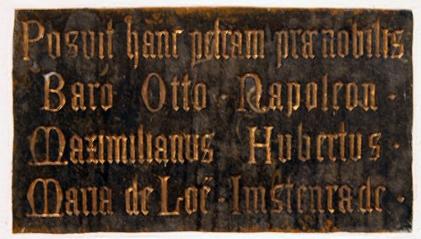 Posuit hanc petram prænobilis
Baro Otto · Napoleon ·
Maximilianus Hubertus ·
Maria de Loë · Imstenrade ·